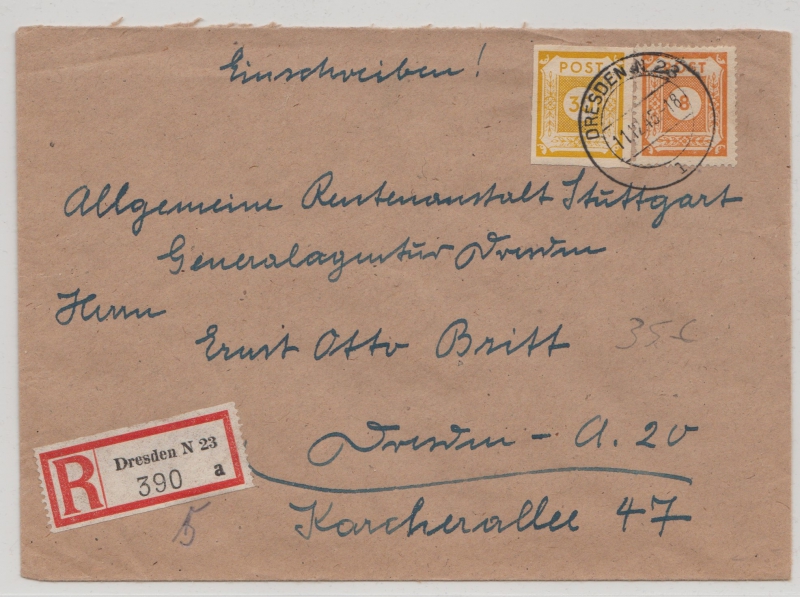 Einschreiben!
POST POST
3 8
DRESDEN N 23
Allgemeine Rentenanstalt Stuttgart
Generalagentur Dresden
Herrn
Ernst Otto Britt
35 €
Dresden - A. 20
Karcherallee 47
R Dresden N 23
390 a
5